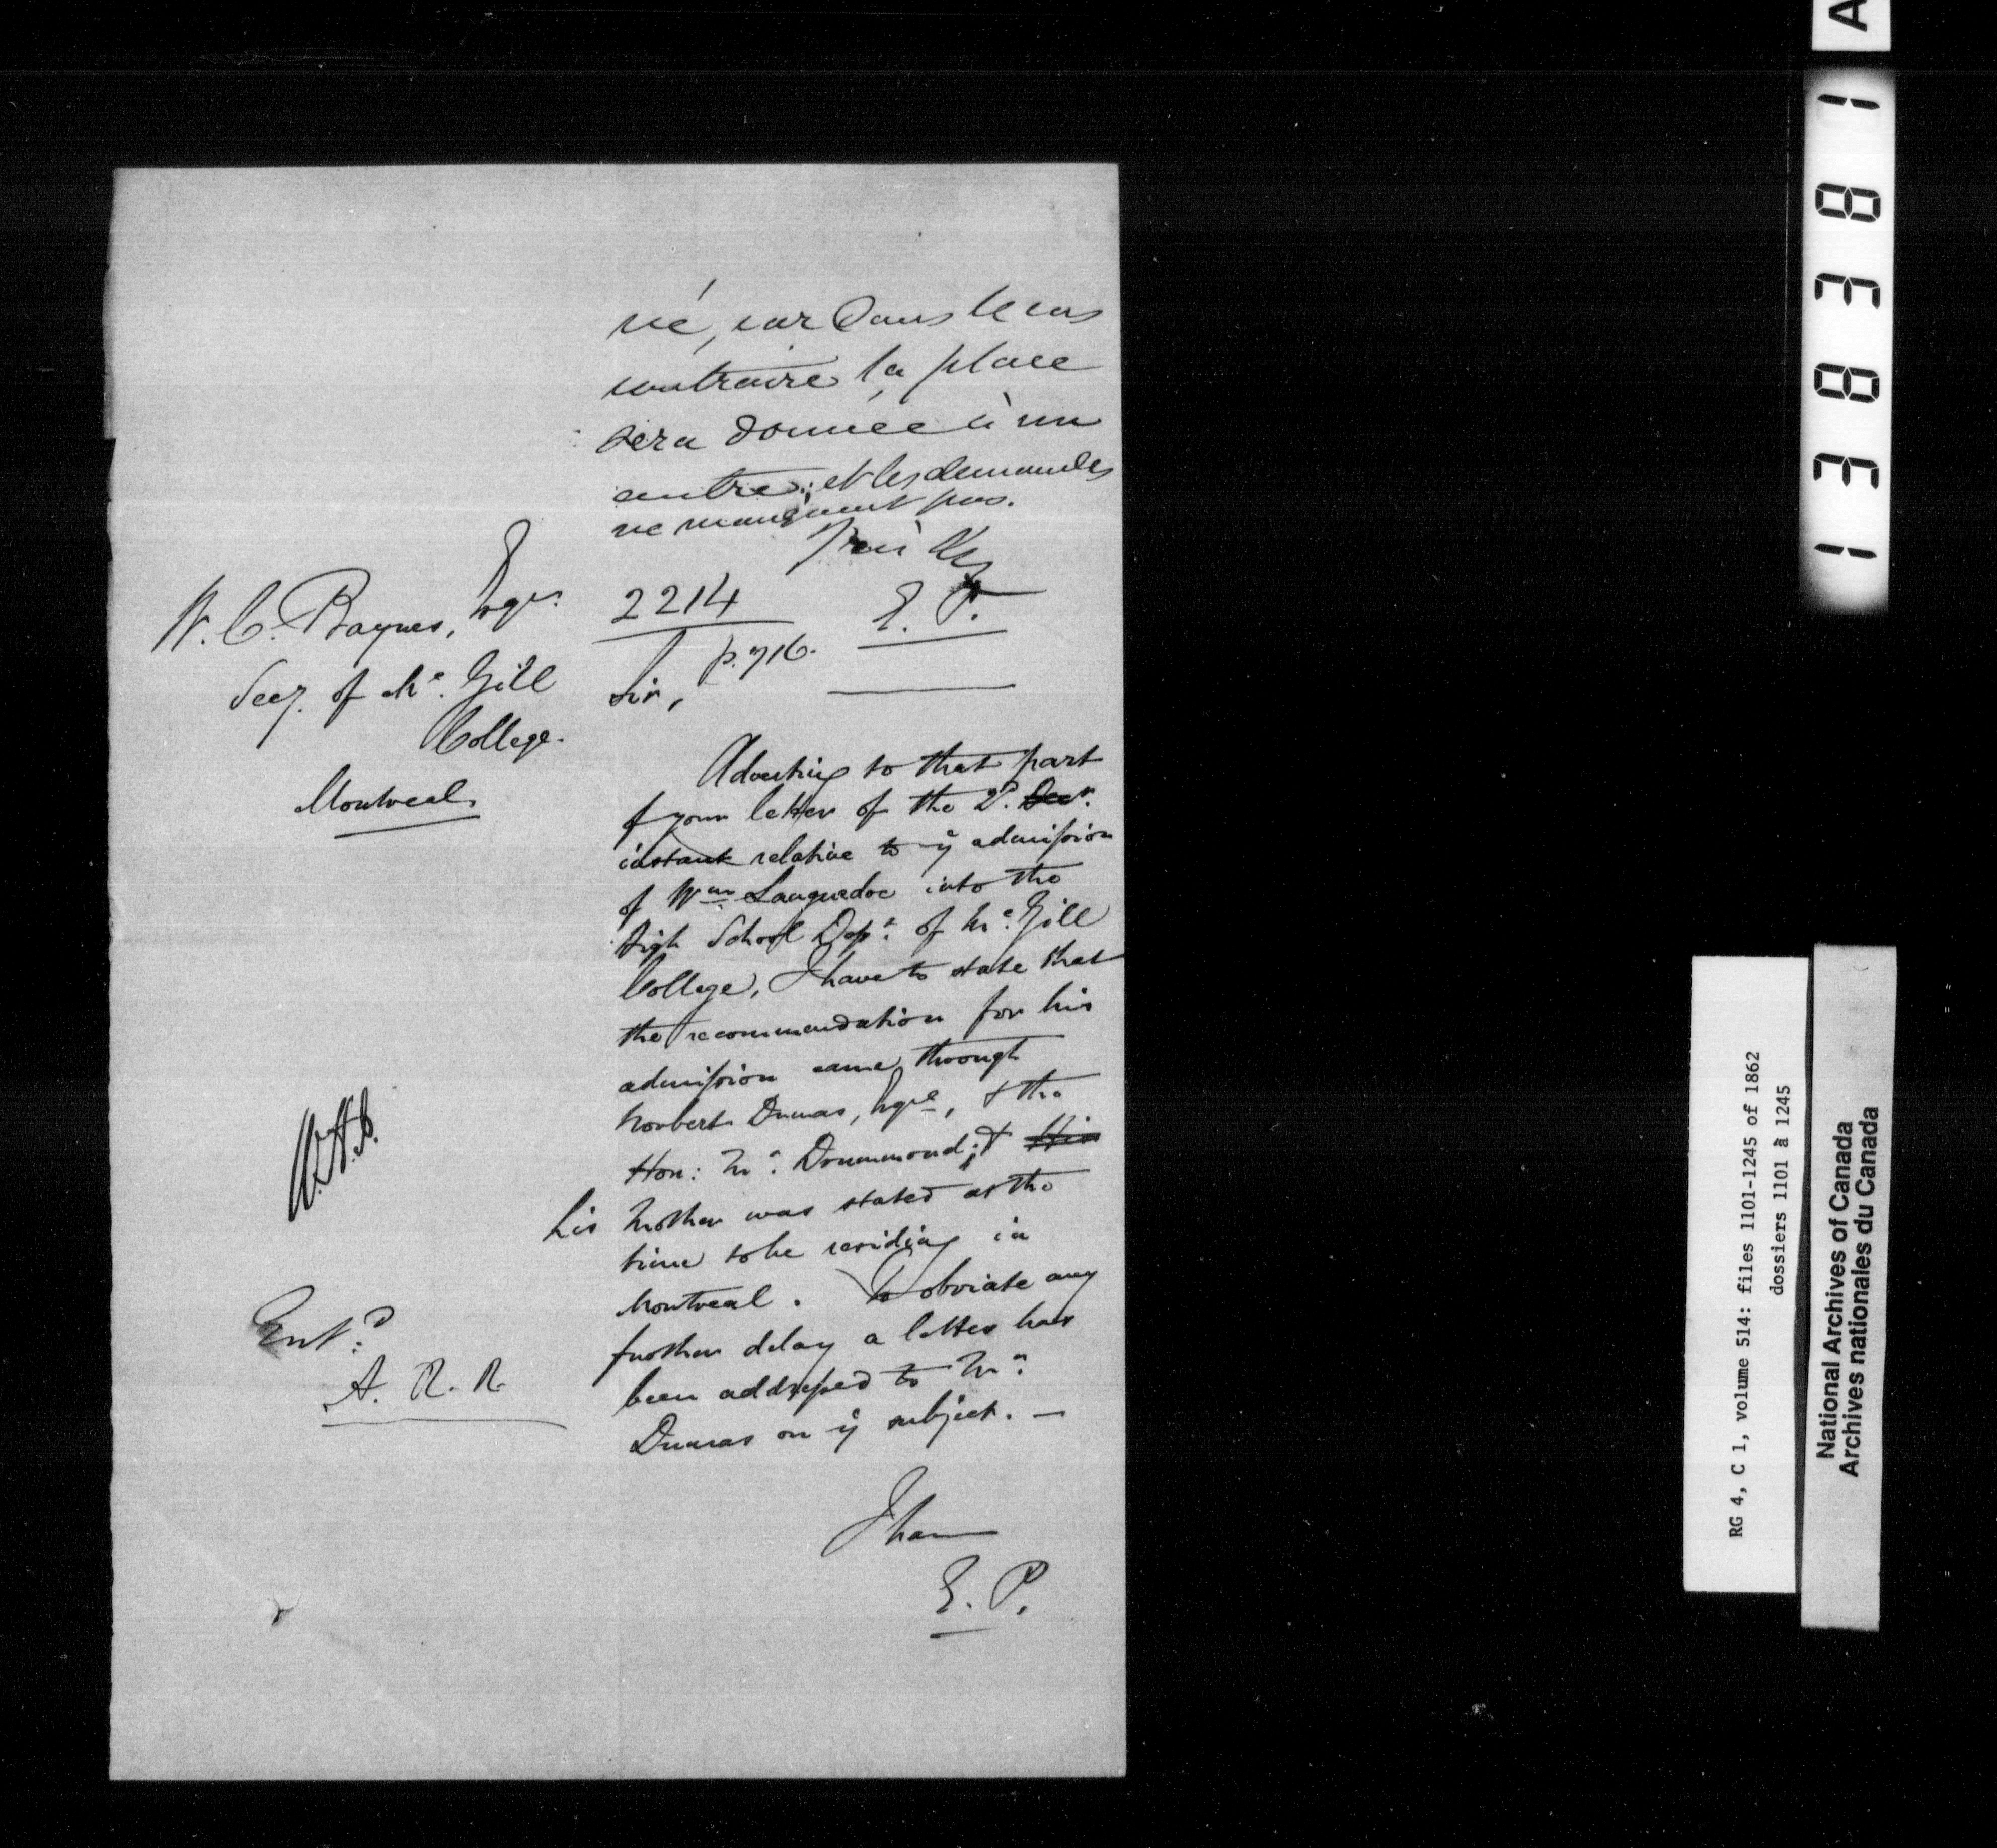 né, car dans le cas
contraire la place
sera donnée à un
autre; et les demandes
ne manquent pas.
E. P.
2214
p. 716.
W. C. Baynes, Esqre.
Secy. of Mc. Gill
College.
Montreal.
Sir,
Adverting to that part
of your letter of the 2d. Decr.
instant relative to ye admission
of Wm Languedoc into the
High School Dept. of Mc. Gill
College, I have to state that
the recommendation for his
admission came through
Norbert Dumas, Esqre, & the
Hon: Mr. Drummond; & His
his Mother was stated at the
time to be residing in
Montreal. To obviate any
further delay a letter has
been addressed to Mr.
Dumas on ye subject. —
I have
E. P.
Entd.
A. R. R.
A
138381
RG 4, C 1, volume 514: files 1101-1245 of 1862
dossiers 1101 à 1245
National Archives of Canada
Archives nationales du Canada